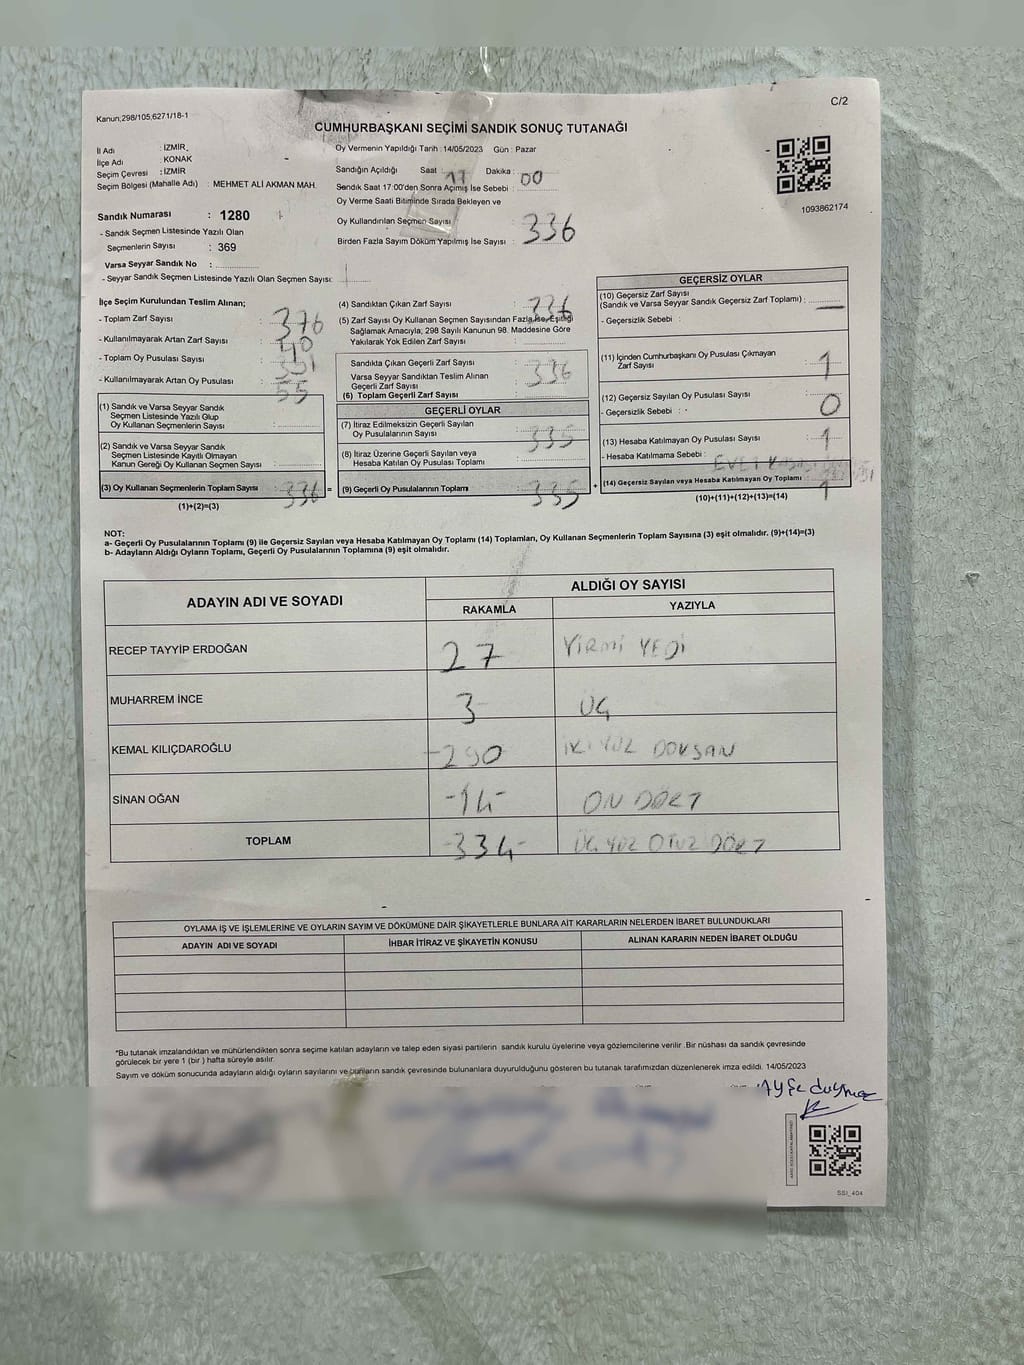 Kanun;298/105,6271/18-1
C/2
CUMHURBAŞKANI SEÇİMİ SANDIK SONUÇ TUTANAĞI
İl Adı : İZMİR
İlçe Adı : KONAK
Seçim Çevresi : İZMİR
Seçim Bölgesi (Mahalle Adı) : MEHMET ALİ AKMAN MAH.
Oy Vermenin Yapıldığı Tarih : 14/05/2023 Gün : Pazar
Sandığın Açıldığı Saat : 17 Dakika : 00
Sandık Saat 17:00'den Sonra Açımış İse Sebebi :
Oy Verme Saati Bitiminde Sırada Bekleyen ve
Oy Kullandırılan Seçmen Sayısı : 336
Birden Fazla Sayım Döküm Yapılmış İse Sayısı :
1093862174
Sandık Numarası : 1280
- Sandık Seçmen Listesinde Yazılı Olan
Seçmenlerin Sayısı : 369
Varsa Seyyar Sandık No :
- Seyyar Sandık Seçmen Listesinde Yazılı Olan Seçmen Sayısı:
İlçe Seçim Kurulundan Teslim Alınan;
- Toplam Zarf Sayısı : 376
- Kullanılmayarak Artan Zarf Sayısı : 40
- Toplam Oy Pusulası Sayısı :
- Kullanılmayarak Artan Oy Pusulası : 55
(1) Sandık ve Varsa Seyyar Sandık
Seçmen Listesinde Yazılı Olup
Oy Kullanan Seçmenlerin Sayısı :
(2) Sandık ve Varsa Seyyar Sandık
Seçmen Listesinde Kayıtlı Olmayan
Kanun Gereği Oy Kullanan Seçmen Sayısı :
(3) Oy Kullanan Seçmenlerin Toplam Sayısı : 336 =
(1)+(2)=(3)
(4) Sandıktan Çıkan Zarf Sayısı : 336
(5) Zarf Sayısı Oy Kullanan Seçmen Sayısından Fazla İse, Eşitliği
Sağlamak Amacıyla, 298 Sayılı Kanunun 98. Maddesine Göre
Yakılarak Yok Edilen Zarf Sayısı :
Sandıkta Çıkan Geçerli Zarf Sayısı :
Varsa Seyyar Sandıktan Teslim Alınan
Geçerli Zarf Sayısı : 336
(6) Toplam Geçerli Zarf Sayısı :
GEÇERLİ OYLAR
(7) İtiraz Edilmeksizin Geçerli Sayılan
Oy Pusulalarının Sayısı : 335
(8) İtiraz Üzerine Geçerli Sayılan veya
Hesaba Katılan Oy Pusulası Toplamı :
(9) Geçerli Oy Pusulalarının Toplamı : 335 +
GEÇERSİZ OYLAR
(10) Geçersiz Zarf Sayısı
(Sandık ve Varsa Seyyar Sandık Geçersiz Zarf Toplamı) : —
- Geçersizlik Sebebi :
(11) İçinden Cumhurbaşkanı Oy Pusulası Çıkmayan
Zarf Sayısı : 1
(12) Geçersiz Sayılan Oy Pusulası Sayısı : 0
- Geçersizlik Sebebi :
(13) Hesaba Katılmayan Oy Pusulası Sayısı : 1
- Hesaba Katılmama Sebebi : EVET
(14) Geçersiz Sayılan veya Hesaba Katılmayan Oy Toplamı : 1
(10)+(11)+(12)+(13)=(14)
NOT:
a- Geçerli Oy Pusulalarının Toplamı (9) ile Geçersiz Sayılan veya Hesaba Katılmayan Oy Toplamı (14) Toplamları, Oy Kullanan Seçmenlerin Toplam Sayısına (3) eşit olmalıdır. (9)+(14)=(3)
b- Adayların Aldığı Oyların Toplamı, Geçerli Oy Pusulalarının Toplamına (9) eşit olmalıdır.
ADAYIN ADI VE SOYADI ALDIĞI OY SAYISI
RAKAMLA YAZIYLA
RECEP TAYYİP ERDOĞAN 27 YİRMİ YEDİ
MUHARREM İNCE 3 ÜÇ
KEMAL KILIÇDAROĞLU -290 İKİ YÜZ DOKSAN
SİNAN OĞAN -14- ON DÖRT
TOPLAM -334- ÜÇ YÜZ OTUZ DÖRT
OYLAMA İŞ VE İŞLEMLERİNE VE OYLARIN SAYIM VE DÖKÜMÜNE DAİR ŞİKAYETLERLE BUNLARA AİT KARARLARIN NELERDEN İBARET BULUNDUKLARI
ADAYIN ADI VE SOYADI İHBAR İTİRAZ VE ŞİKAYETİN KONUSU ALINAN KARARIN NEDEN İBARET OLDUĞU
*Bu tutanak imzalandıktan ve mühürlendikten sonra seçime katılan adayların ve talep eden siyasi partilerin sandık kurulu üyelerine veya gözlemcilerine verilir .Bir nüshası da sandık çevresinde
görülecek bir yere 1 (bir ) hafta süreyle asılır.
Sayım ve döküm sonucunda adayların aldığı oyların sayılarını ve bunların sandık çevresinde bulunanlara duyurulduğunu gösteren bu tutanak tarafımızdan düzenlenerek imza edildi. 14/05/2023
Ayşe duymaz
SSİ_404